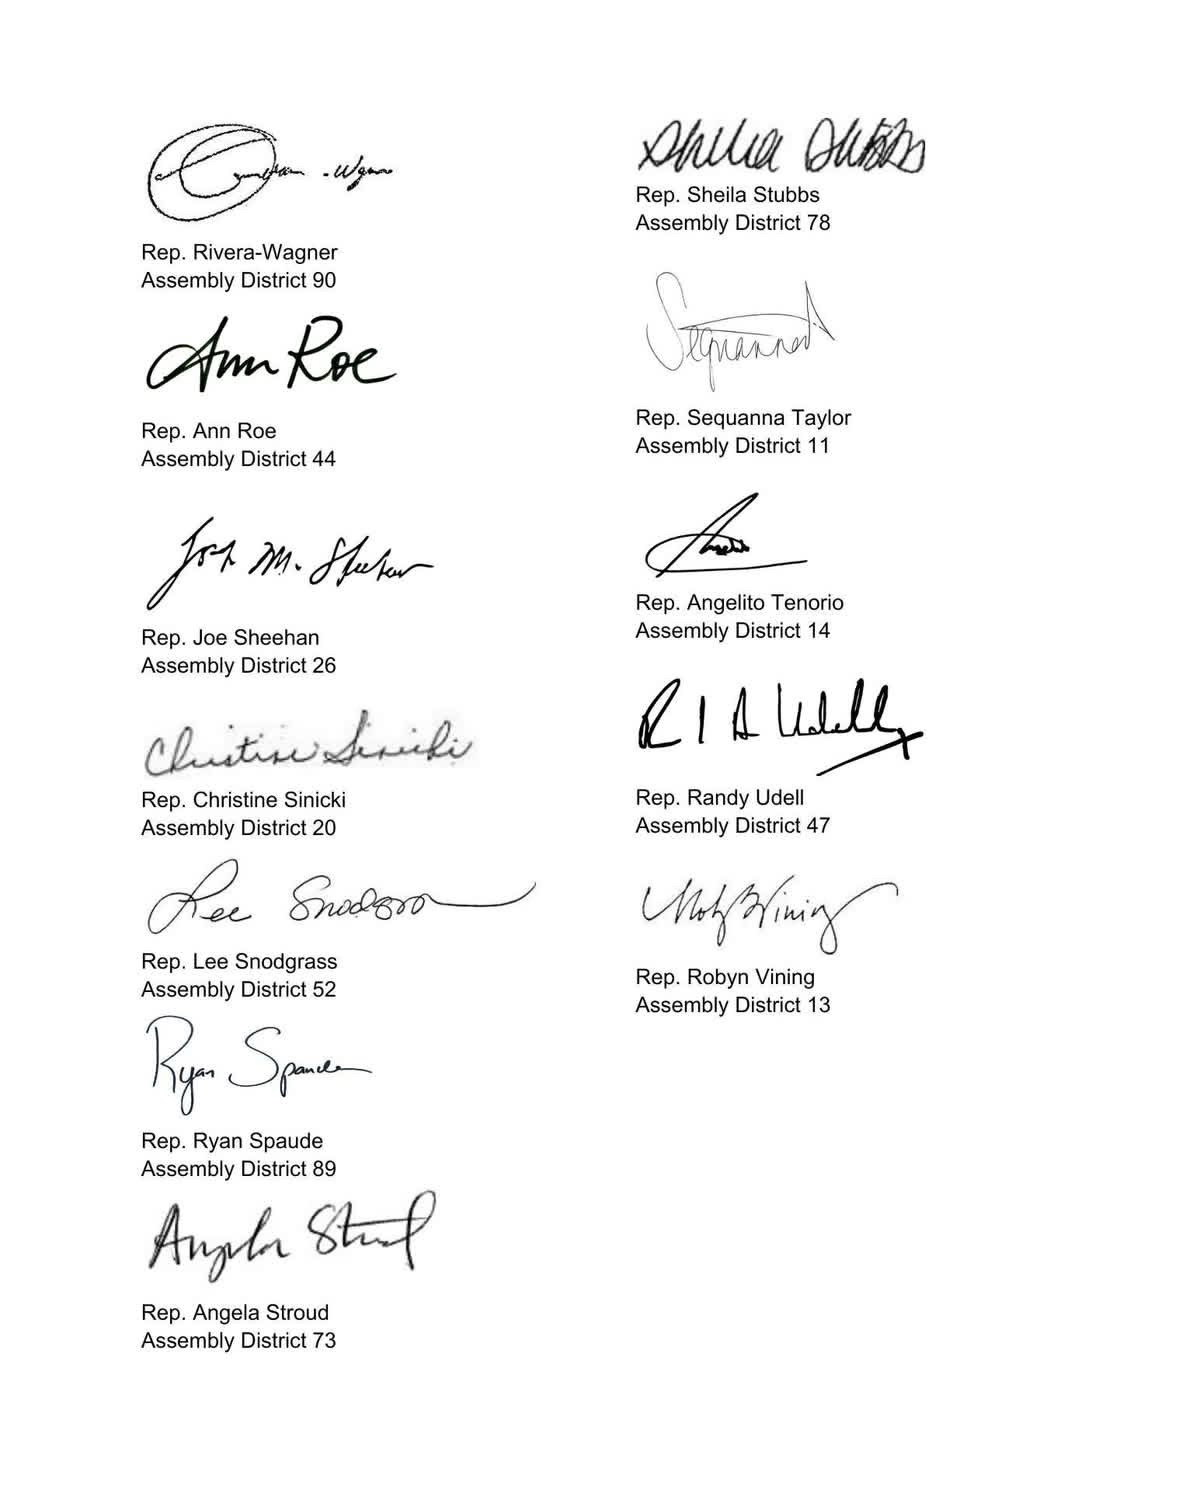 Rep. Rivera-Wagner
Assembly District 90
Ann Roe
Rep. Ann Roe
Assembly District 44
M. Sheehan
Rep. Joe Sheehan
Assembly District 26
Christine Sinicki
Rep. Christine Sinicki
Assembly District 20
Lee Snodgrass
Rep. Lee Snodgrass
Assembly District 52
Ryan Spaude
Rep. Ryan Spaude
Assembly District 89
Angela Stroud
Rep. Angela Stroud
Assembly District 73
Shelia Stubbs
Rep. Sheila Stubbs
Assembly District 78
Sequanna
Rep. Sequanna Taylor
Assembly District 11
Rep. Angelito Tenorio
Assembly District 14
R I A Udell
Rep. Randy Udell
Assembly District 47
Vining
Rep. Robyn Vining
Assembly District 13